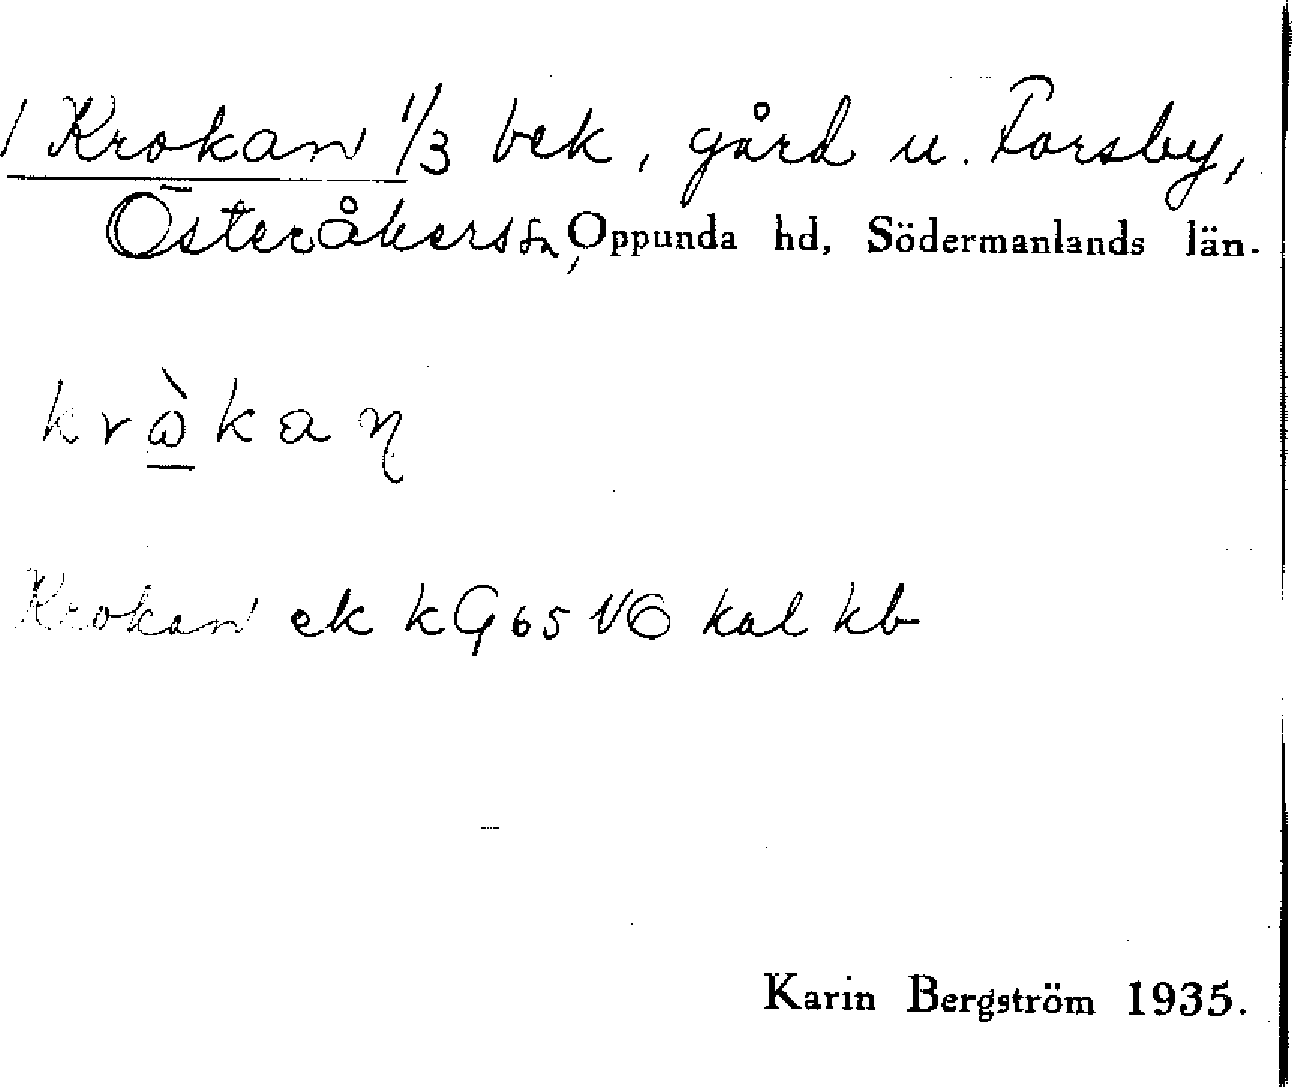 1 Krokan 1/3 bek, gård u. Forsby,
Österåkers sn, Oppunda hd, Södermanlands län.
kr&#242;kan
Krokan ek kG 65 VG kal kb
Karin Bergström 1935.